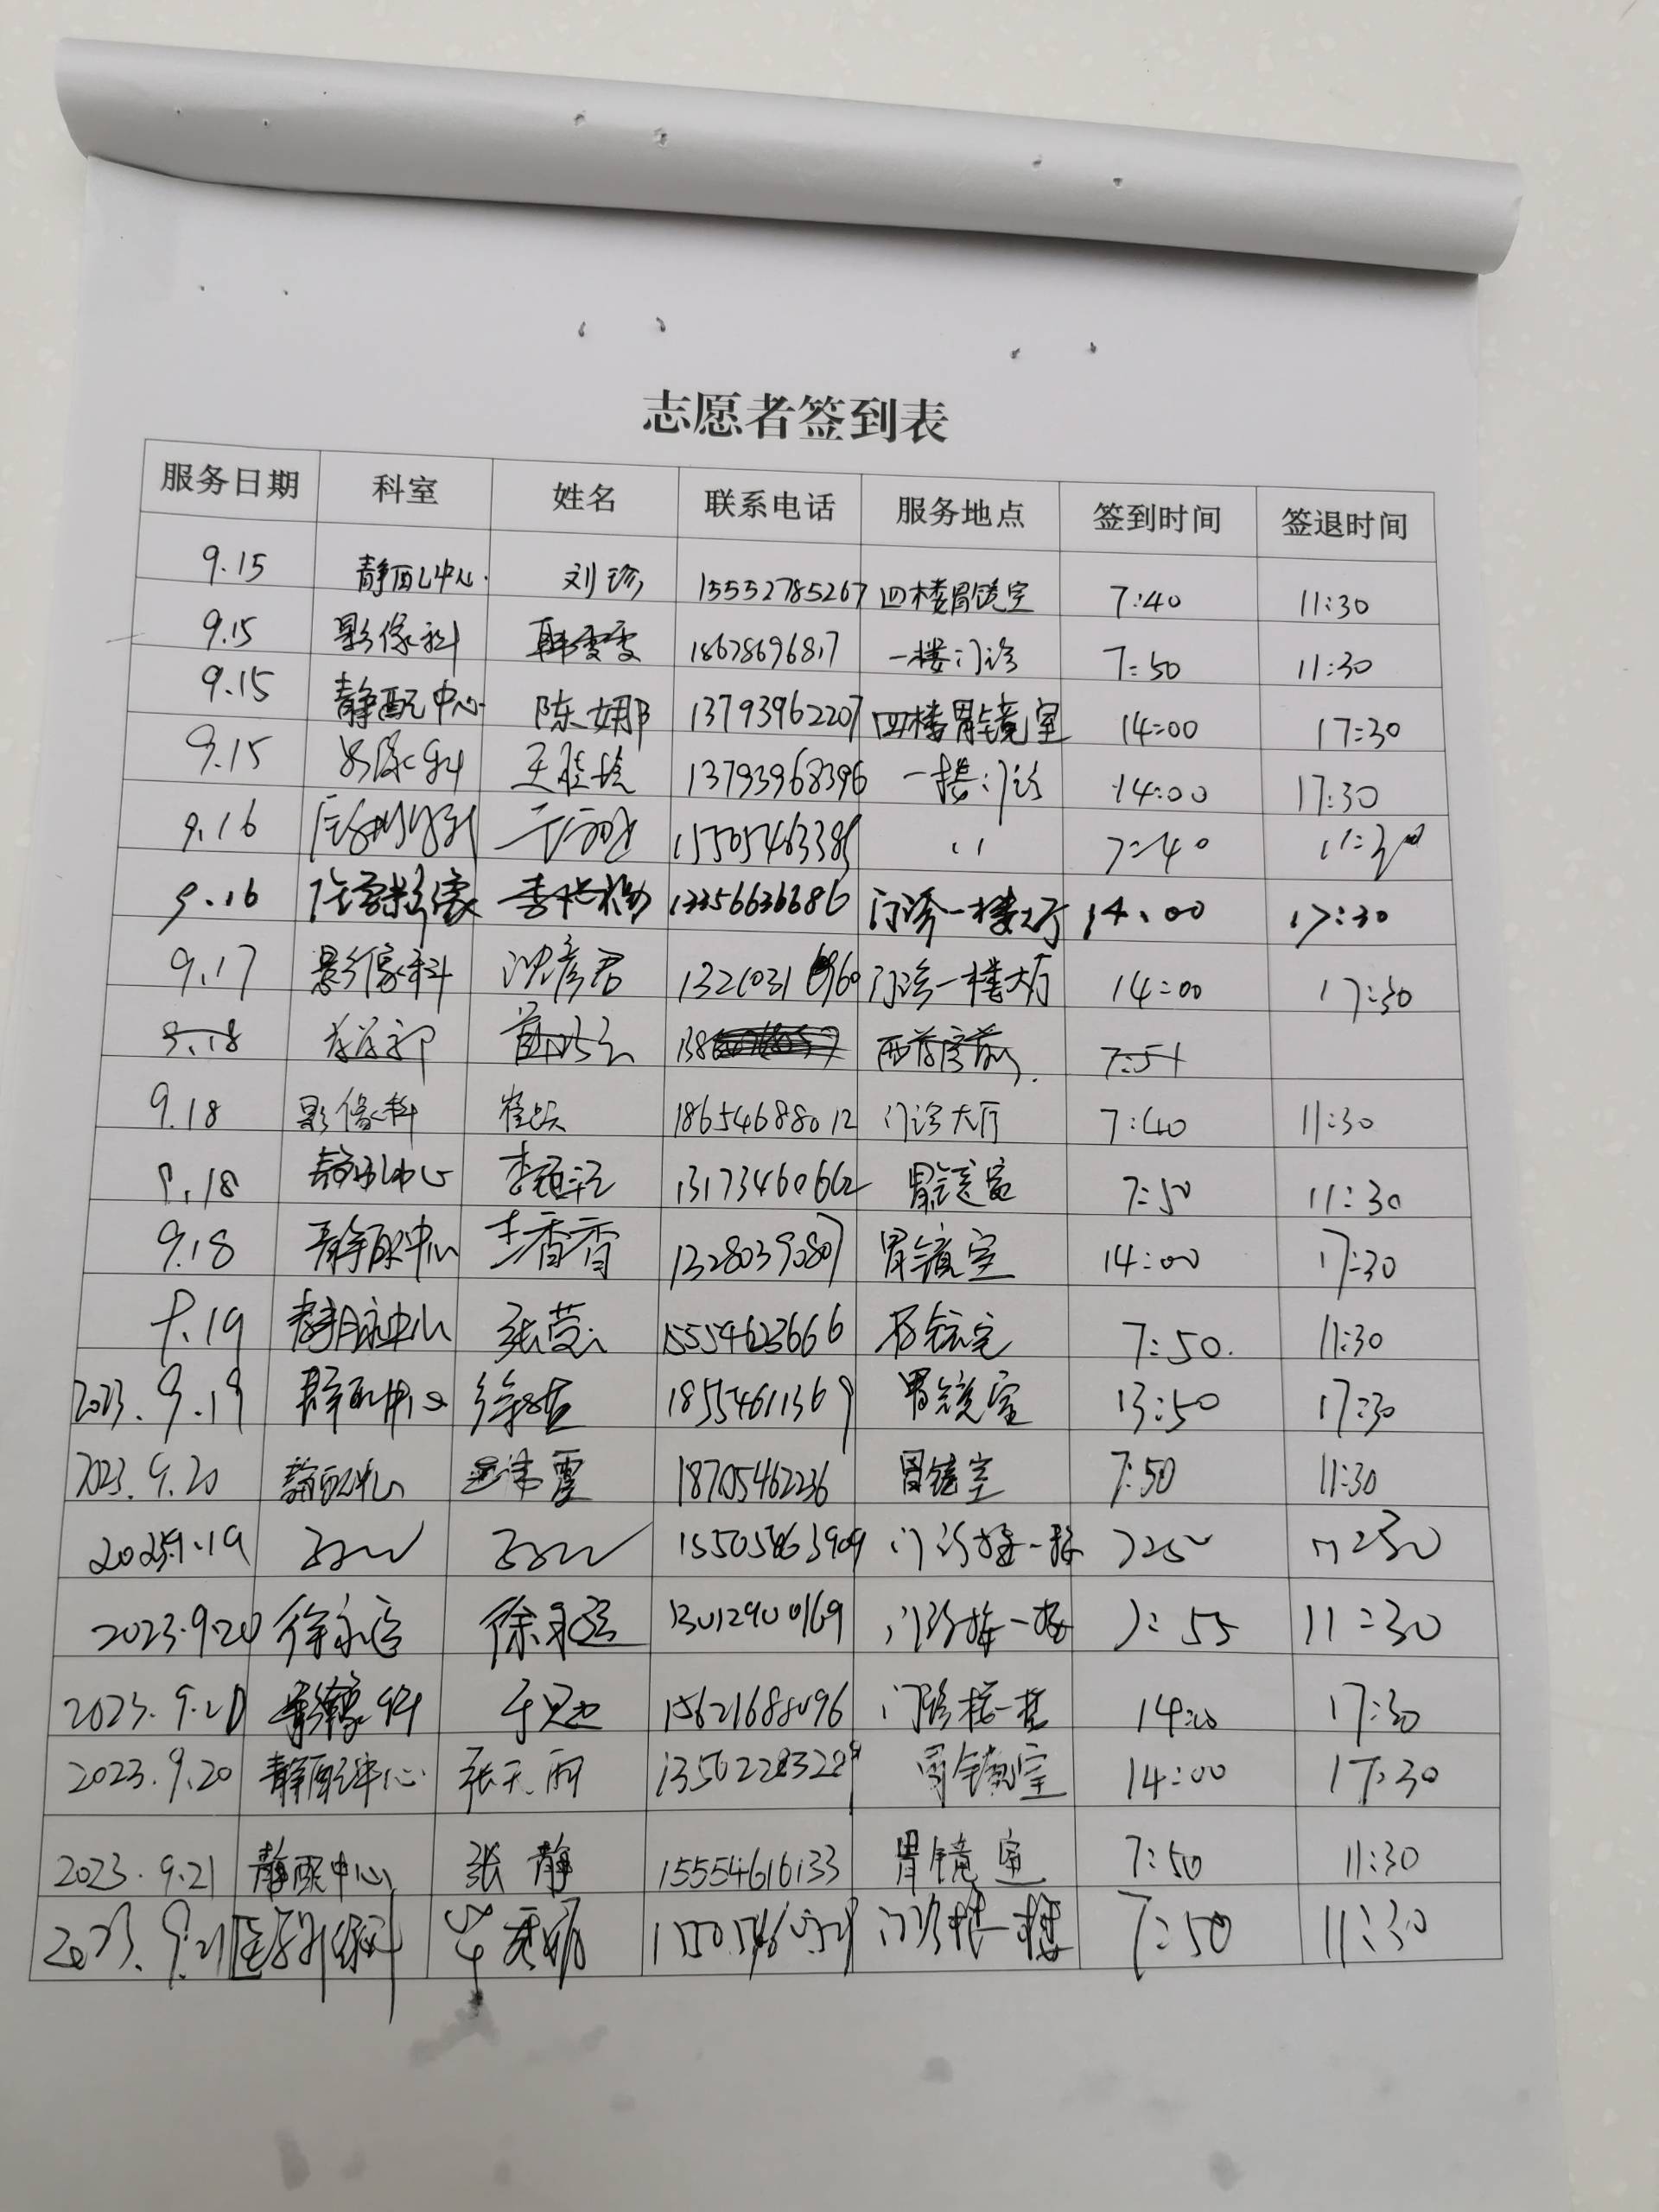 志愿者签到表
服务日期 科室 姓名 联系电话 服务地点 签到时间 签退时间
9.15 静配中心 刘珍 15552785267 四楼胃镜室 7:40 11:30
9.15 影像科 韩雯雯 18678696817 一楼门诊 7:50 11:30
9.15 静配中心 陈娜 13793962207 四楼胃镜室 14:00 17:30
9.15 13793968396 一楼门诊 14:00 17:30
9.16 〃 7:40 11:30
9.16 13356636686 门诊一楼大厅 14:00 17:30
9.17 影像科 沈彦君 门诊一楼大厅 14:00 17:30
9.18 7:51
9.18 影像科 18654688012 门诊大厅 7:40 11:30
9.18 静配中心 13173460662 胃镜室 7:50 11:30
9.18 静配中心 李香香 13280390807 胃镜室 14:00 17:30
9.19 静配中心 张莹 15554623666 胃镜室 7:50 11:30
2023.9.19 静配中心 18554611369 胃镜室 13:50 17:30
2023.9.20 静配中心 18705462236 胃镜室 7:50 11:30
门诊楼一楼
2023.9.20 13012900169 门诊楼一楼 7:55 11:30
2023.9.20 影像科 15621688096 门诊楼一楼 14:00 17:30
2023.9.20 静配中心 张天雨 胃镜室 14:00 17:30
2023.9.21 静配中心 张静 15554616133 胃镜室 7:50 11:30
2023.9.21 医学影像科 门诊楼一楼 7:50 11:30